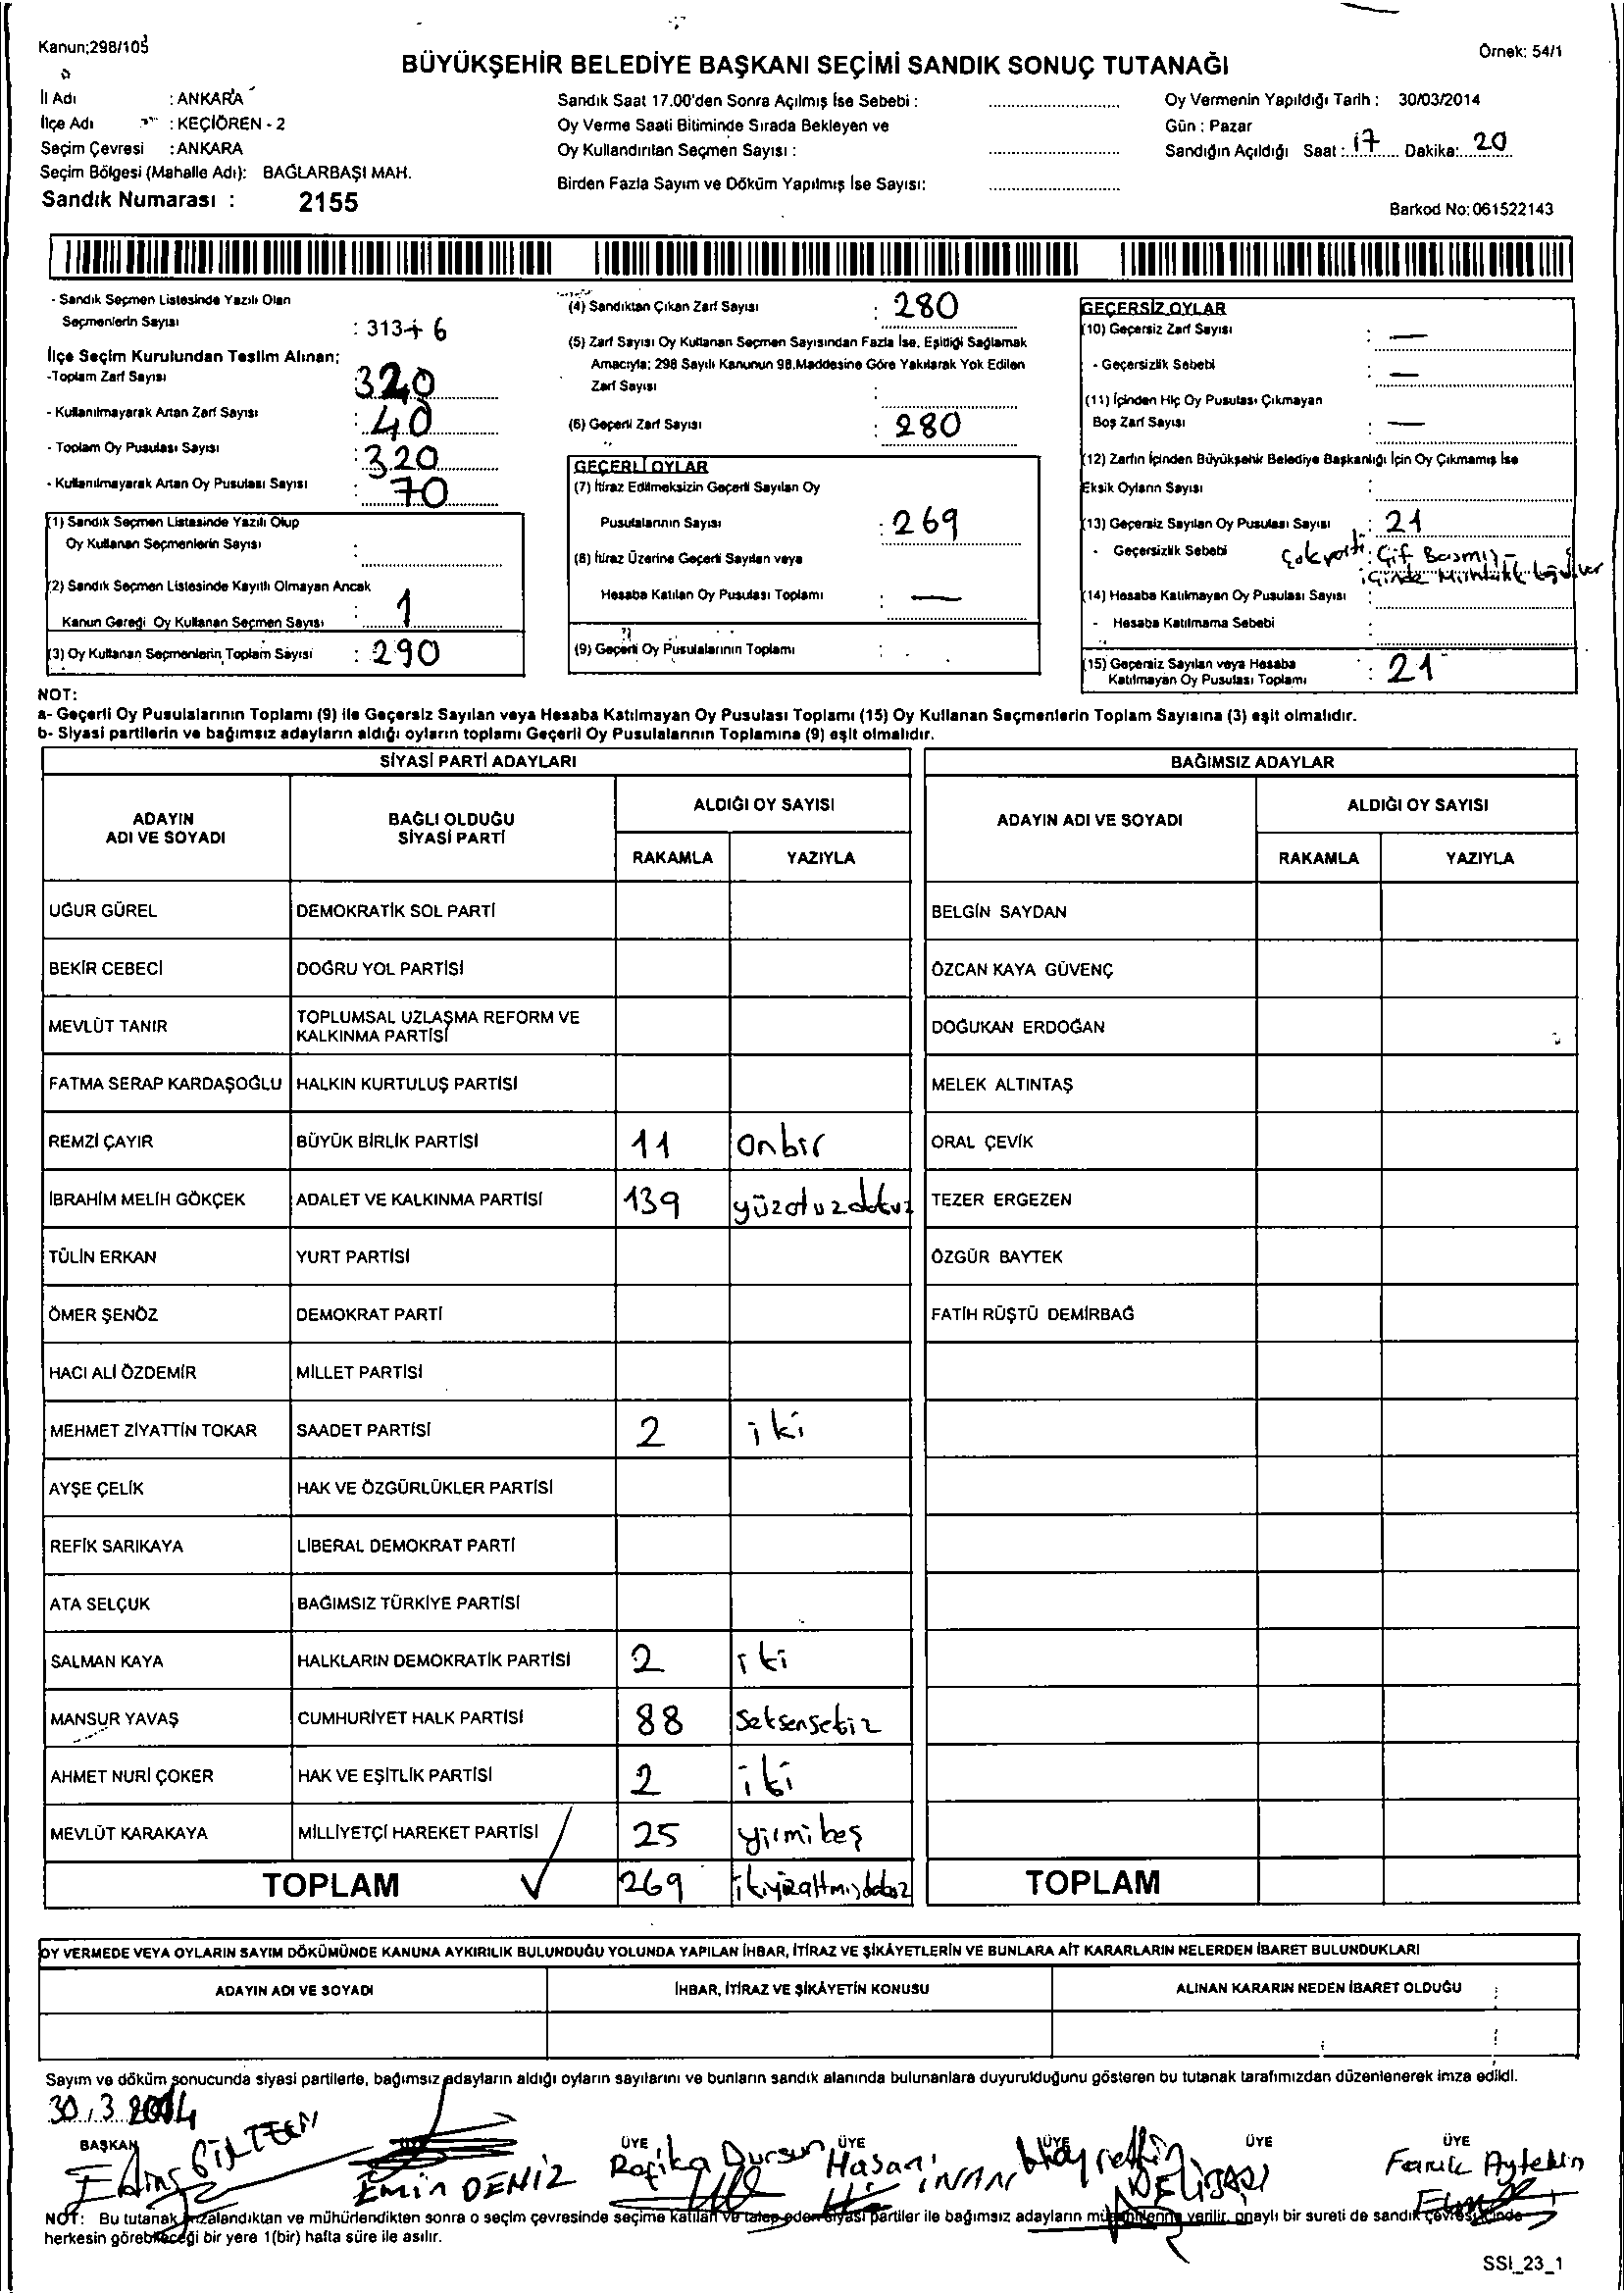 Kanun;298/105
Örnek: 54/1
BÜYÜKŞEHİR BELEDİYE BAŞKANI SEÇİMİ SANDIK SONUÇ TUTANAĞI
İl Adı : ANKARA
İlçe Adı : KEÇİÖREN - 2
Seçim Çevresi : ANKARA
Seçim Bölgesi (Mahalle Adı): BAĞLARBAŞI MAH.
Sandık Numarası : 2155
Sandık Saat 17.00'den Sonra Açılmış İse Sebebi :
Oy Verme Saati Bitiminde Sırada Bekleyen ve
Oy Kullandırılan Seçmen Sayısı :
Birden Fazla Sayım ve Döküm Yapılmış İse Sayısı:
Oy Vermenin Yapıldığı Tarih : 30/03/2014
Gün : Pazar
Sandığın Açıldığı Saat : 17 Dakika: 20
Barkod No: 061522143
- Sandık Seçmen Listesinde Yazılı Olan
Seçmenlerin Sayısı : 313+6
İlçe Seçim Kurulundan Teslim Alınan:
-Toplam Zarf Sayısı 320
- Kullanılmayarak Artan Zarf Sayısı : 40
- Toplam Oy Pusulası Sayısı : 320
- Kullanılmayarak Artan Oy Pusulası Sayısı : 70
(1) Sandık Seçmen Listesinde Yazılı Olup
Oy Kullanan Seçmenlerin Sayısı :
(2) Sandık Seçmen Listesinde Kayıtlı Olmayan Ancak
Kanun Gereği Oy Kullanan Seçmen Sayısı : 1
(3) Oy Kullanan Seçmenlerin Toplam Sayısı : 290
(4) Sandıktan Çıkan Zarf Sayısı : 280
(5) Zarf Sayısı Oy Kullanan Seçmen Sayısından Fazla İse, Eşitliği Sağlamak
Amacıyla; 298 Sayılı Kanunun 98.Maddesine Göre Yakılarak Yok Edilen
Zarf Sayısı :
(6) Geçerli Zarf Sayısı : 280
GEÇERLİ OYLAR
(7) İtiraz Edilmeksizin Geçerli Sayılan Oy
Pusulalarının Sayısı : 269
(8) İtiraz Üzerine Geçerli Sayılan veya
Hesaba Katılan Oy Pusulası Toplamı : —
(9) Geçerli Oy Pusulalarının Toplamı :
GEÇERSİZ OYLAR
(10) Geçersiz Zarf Sayısı : —
- Geçersizlik Sebebi : —
(11) İçinden Hiç Oy Pusulası Çıkmayan
Boş Zarf Sayısı : —
(12) Zarfın İçinden Büyükşehir Belediye Başkanlığı İçin Oy Çıkmamış İse
Eksik Oyların Sayısı :
(13) Geçersiz Sayılan Oy Pusulası Sayısı : 21
- Geçersizlik Sebebi : Çif Basmış -
(14) Hesaba Katılmayan Oy Pusulası Sayısı :
- Hesaba Katılmama Sebebi :
(15) Geçersiz Sayılan veya Hesaba
Katılmayan Oy Pusulası Toplamı : 21
NOT:
a- Geçerli Oy Pusulalarının Toplamı (9) ile Geçersiz Sayılan veya Hesaba Katılmayan Oy Pusulası Toplamı (15) Oy Kullanan Seçmenlerin Toplam Sayısına (3) eşit olmalıdır.
b- Siyasi partilerin ve bağımsız adayların aldığı oyların toplamı Geçerli Oy Pusulalarının Toplamına (9) eşit olmalıdır.
SİYASİ PARTİ ADAYLARI
ADAYIN ADI VE SOYADI BAĞLI OLDUĞU SİYASİ PARTİ ALDIĞI OY SAYISI
RAKAMLA YAZIYLA
UĞUR GÜREL DEMOKRATİK SOL PARTİ
BEKİR CEBECİ DOĞRU YOL PARTİSİ
MEVLÜT TANIR TOPLUMSAL UZLAŞMA REFORM VE KALKINMA PARTİSİ
FATMA SERAP KARDAŞOĞLU HALKIN KURTULUŞ PARTİSİ
REMZİ ÇAYIR BÜYÜK BİRLİK PARTİSİ 11 onbir
İBRAHİM MELİH GÖKÇEK ADALET VE KALKINMA PARTİSİ 139 yüzotuzdokuz
TÜLİN ERKAN YURT PARTİSİ
ÖMER ŞENÖZ DEMOKRAT PARTİ
HACI ALİ ÖZDEMİR MİLLET PARTİSİ
MEHMET ZİYATTİN TOKAR SAADET PARTİSİ 2 iki
AYŞE ÇELİK HAK VE ÖZGÜRLÜKLER PARTİSİ
REFİK SARIKAYA LİBERAL DEMOKRAT PARTİ
ATA SELÇUK BAĞIMSIZ TÜRKİYE PARTİSİ
SALMAN KAYA HALKLARIN DEMOKRATİK PARTİSİ 2 iki
MANSUR YAVAŞ CUMHURİYET HALK PARTİSİ 88 seksensekiz
AHMET NURİ ÇOKER HAK VE EŞİTLİK PARTİSİ 2 iki
MEVLÜT KARAKAYA MİLLİYETÇİ HAREKET PARTİSİ 25 yirmibeş
TOPLAM 269 ikiyüzaltmışdokuz
BAĞIMSIZ ADAYLAR
ADAYIN ADI VE SOYADI ALDIĞI OY SAYISI
RAKAMLA YAZIYLA
BELGİN SAYDAN
ÖZCAN KAYA GÜVENÇ
DOĞUKAN ERDOĞAN
MELEK ALTINTAŞ
ORAL ÇEVİK
TEZER ERGEZEN
ÖZGÜR BAYTEK
FATİH RÜŞTÜ DEMİRBAĞ
TOPLAM
OY VERMEDE VEYA OYLARIN SAYIM DÖKÜMÜNDE KANUNA AYKIRILIK BULUNDUĞU YOLUNDA YAPILAN İHBAR, İTİRAZ VE ŞİKÂYETLERİN VE BUNLARA AİT KARARLARIN NELERDEN İBARET BULUNDUKLARI
ADAYIN ADI VE SOYADI İHBAR, İTİRAZ VE ŞİKÂYETİN KONUSU ALINAN KARARIN NEDEN İBARET OLDUĞU
Sayım ve döküm sonucunda siyasi partilerle, bağımsız adayların aldığı oyların sayılarını ve bunların sandık alanında bulunanlara duyurulduğunu gösteren bu tutanak tarafımızdan düzenlenerek imza edildi.
30.3.2014
BAŞKAN ÜYE ÜYE ÜYE ÜYE ÜYE
Emin DENİZ Refika Dursun Hasan İNAN Hayrettin Faruk Aytekin
NOT: Bu tutanak imzalandıktan ve mühürlendikten sonra o seçim çevresinde seçime katılan ve talep eden siyasi partiler ile bağımsız adayların müşahitlerine verilir, onaylı bir sureti de sandık çevresi içinde
herkesin görebileceği bir yere 1(bir) hafta süre ile asılır.
SSI_23_1